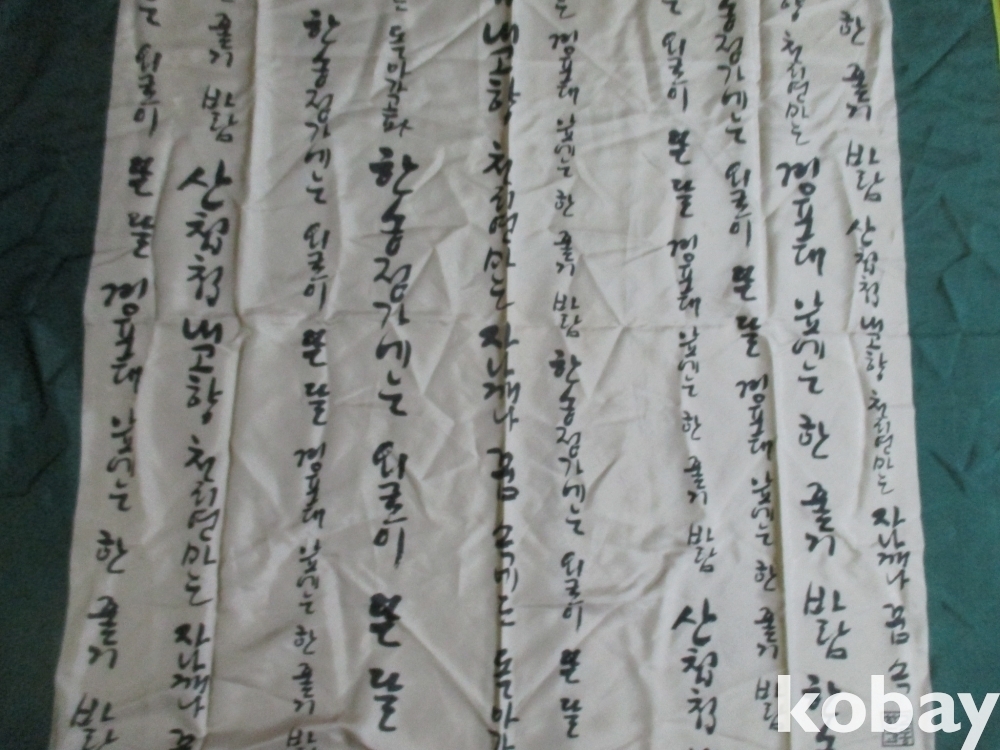 외로이 뜬 달 경포대 앞에는 한 줄기 바람
줄기 바람 산첩첩 내고향 천리연마는 자나깨나
한송정가에는 외로이 뜬 달 경포대 앞에는 한 줄기
돌아가고파 한송정가에는 외로이 뜬 달
내고향 천리연마는 자나깨나 꿈 속에도 돌아가
경포대 앞에는 한 줄기 바람 한송정가에는 외로이 뜬 달
외로이 뜬 달 경포대 앞에는 한 줄기 바람 산첩첩
송정가에는 외로이 뜬 달 경포대 앞에는 한 줄기 바람
향 천리연마는 경포대 앞에는 한 줄기 바람 한
한 줄기 바람 산첩첩 내고향 천리연마는 자나깨나 꿈 속
kobay